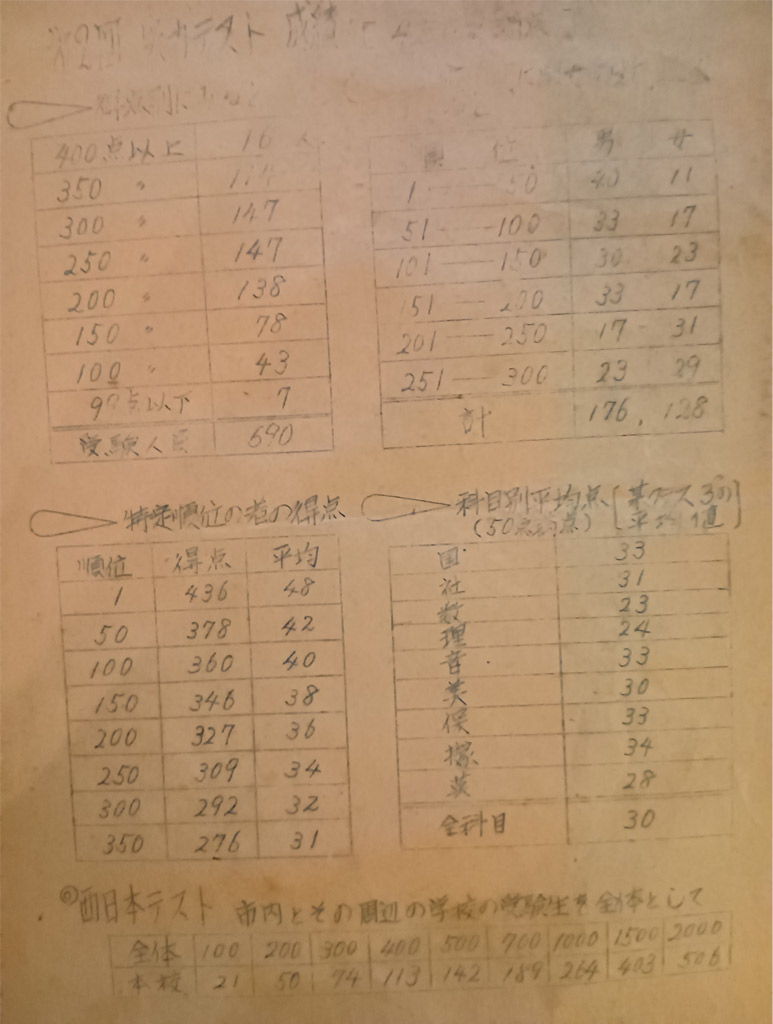 第2回 実力テスト 成績
得点別に
400点以上 16
350 〃 114
300 〃 147
250 〃 147
200 〃 138
150 〃 78
100 〃 43
99点以下 7
受験人員 690
順位 男 女
1 — 50 40 11
51 — 100 33 17
101 — 150 30 23
151 — 200 33 17
201 — 250 17 31
251 — 300 23 29
計 176 128
特定順位の者の得点
順位 得点 平均
1 436 48
50 378 42
100 360 40
150 346 38
200 327 36
250 309 34
300 292 32
350 276 31
科目別平均点
(50点満点)
国 33
社 31
数 23
理 24
音 33
美 30
保 33
34
英 28
全科目 30
◎西日本テスト 市内とその周辺の学校の受験生を全体として
全体 100 200 300 400 500 700 1000 1500 2000
本校 21 50 74 113 142 189 264 403 506